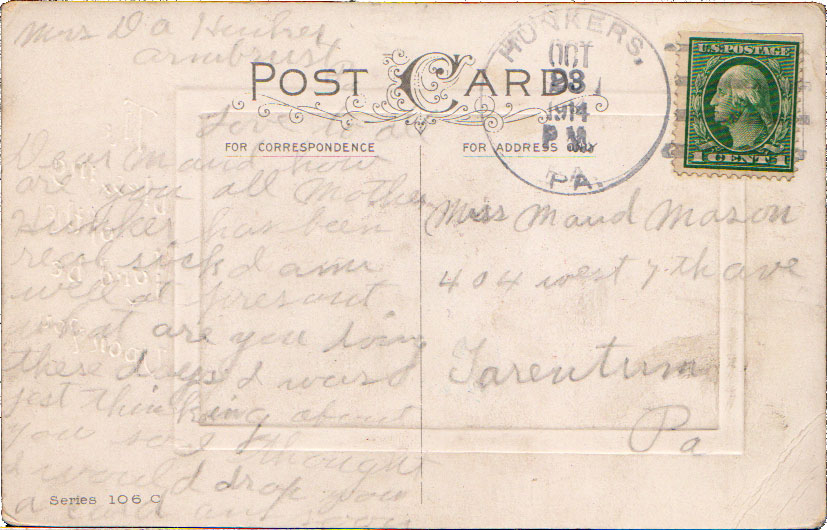 Mrs D A Hunker
Armbrust
POST CARD
HUNKERS,
OCT
1914
P M.
PA.
U.S. POSTAGE
1 CENT 1
FOR CORRESPONDENCE
FOR ADDRESS ONLY
Love to all
Dear Maud how
are you all Mother
Hunker has been
real sick I am
well at presant
what are you doing
these days I was
jest thinking about
you so I thought
I would drop you
a card
Miss Maud Mason
404 west 7th ave
Tarentum
Pa
Series 106 C